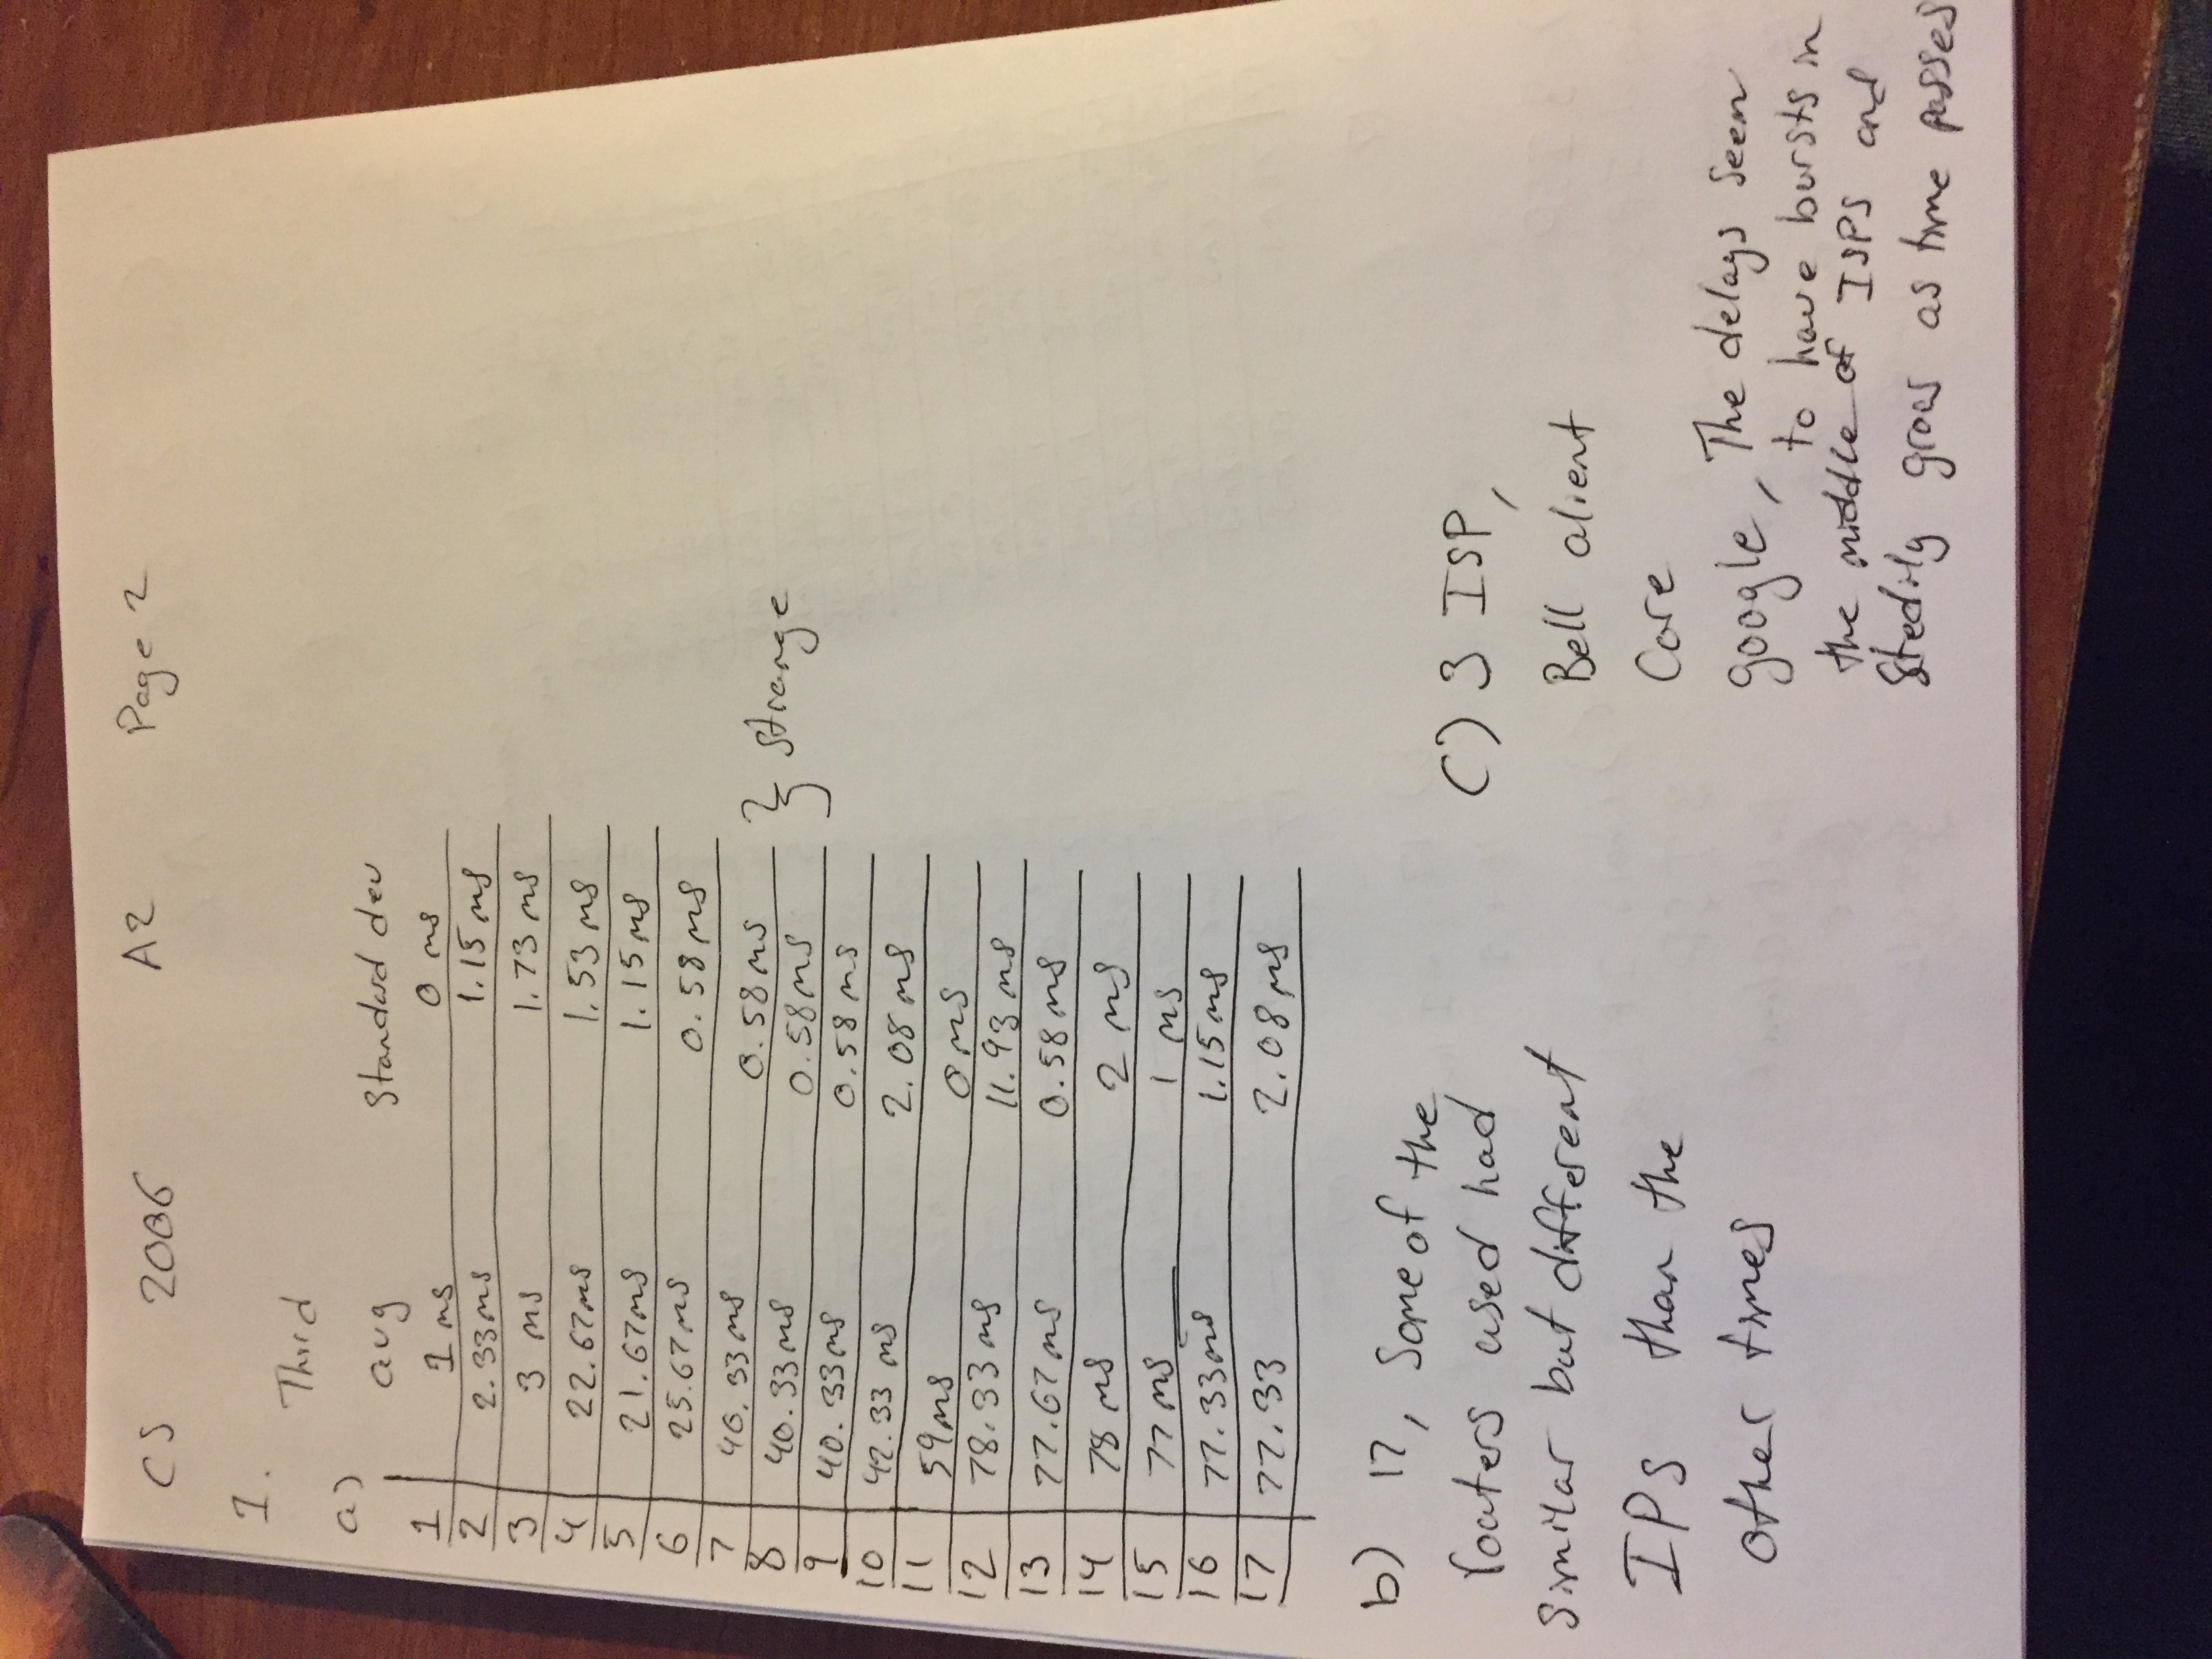 CS 2006 A2 Page 2
1.
Third
a)
avg standard dev
1 1 ms 0 ms
2 2.33ms 1.15 ms
3 3 ms 1.73 ms
4 22.67ms 1.53 ms
5 21.67ms 1.15 ms
6 25.67ms 0.58 ms
7 40.33ms 0.58 ms
8 40.33ms 0.58ms } strange
9 40.33ms 0.58 ms
10 42.33 ms 2.08 ms
11 59ms 0 ms
12 78.33 ms 11.93 ms
13 77.67ms 0.58 ms
14 78 ms 2 ms
15 77 ms 1 ms
16 77.33ms 1.15ms
17 77.33 2.08 ms
b) 17, Some of the
routers used had
similar but different
IPs than the
other times
C) 3 ISP,
Bell alient
Core
google, The delays seem
to have bursts in
the middle of ISPs and
Stedily grows as time passes